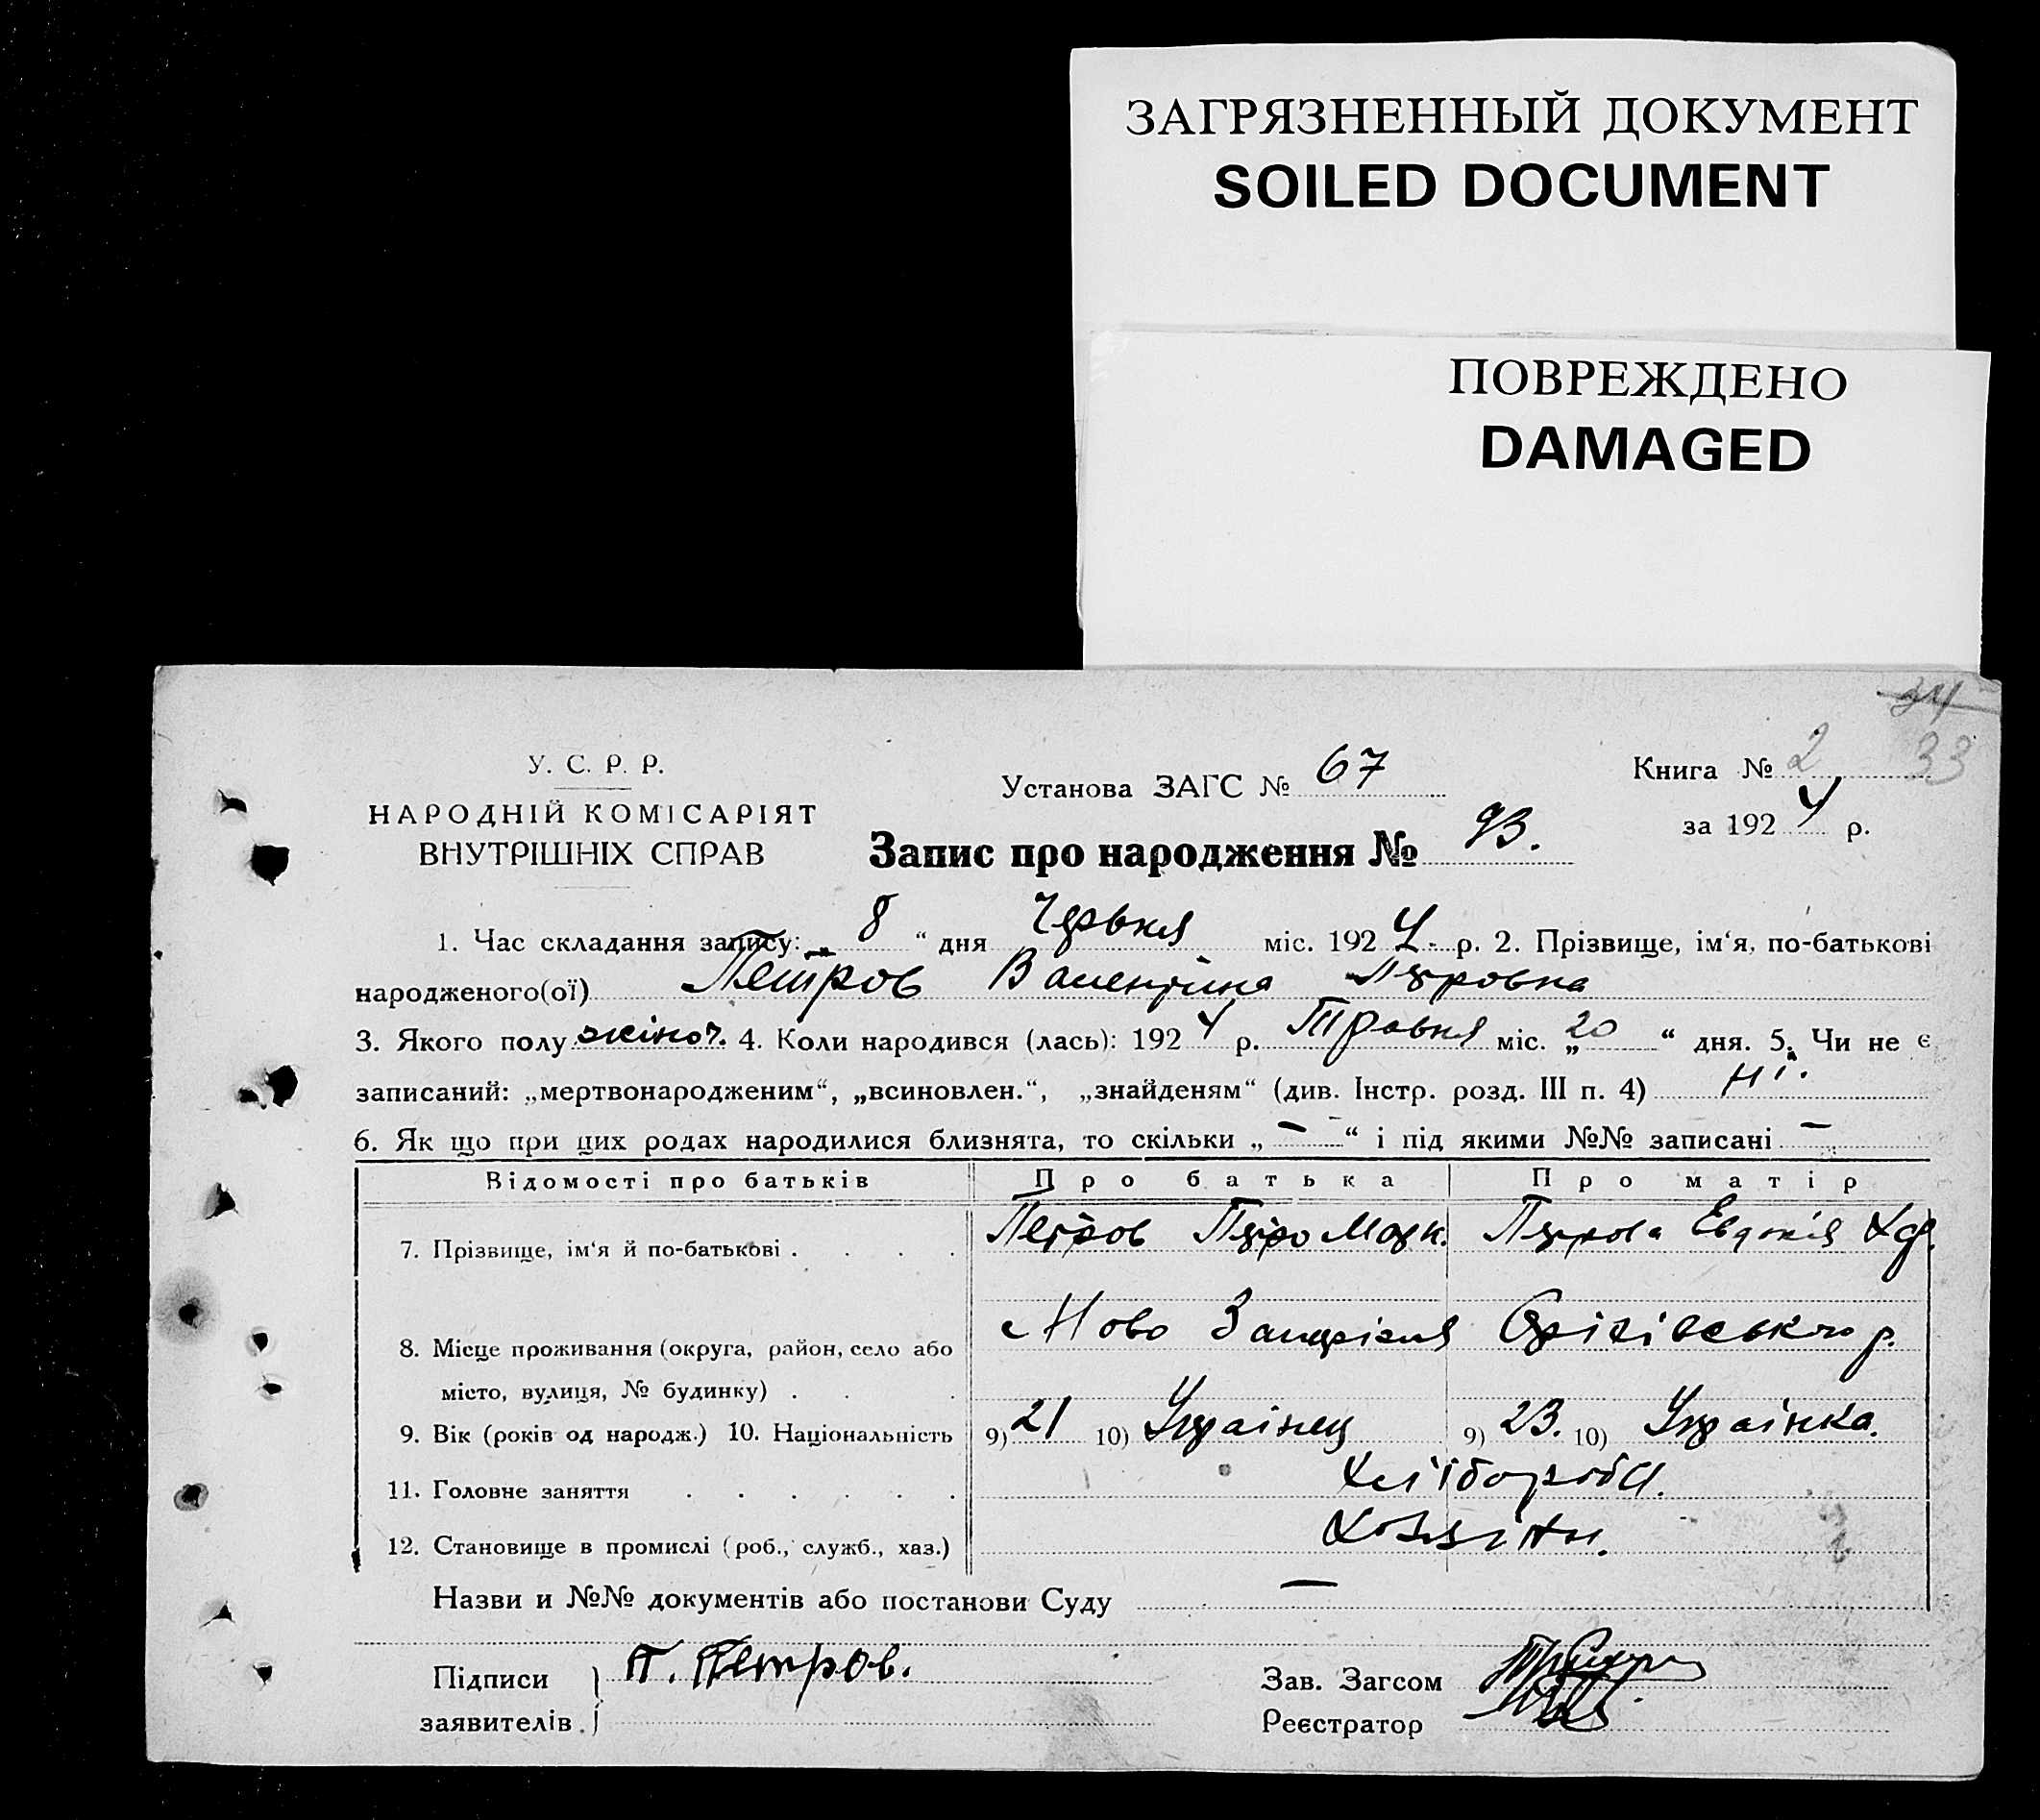 ЗАГРЯЗНЕННЫЙ ДОКУМЕНТ
SOILED DOCUMENT
ПОВРЕЖДЕНО
DAMAGED
34
33
У. С. Р. Р.
НАРОДНІЙ КОМІСАРІЯТ
ВНУТРІШНІХ СПРАВ
Установа ЗАГС № 67
Книга № 2
за 1924 р.
Запис про народження № 93.
1. Час складання запису: „ 8 “ дня Червня міс. 1924 р. 2. Прізвище, ім‘я, по-батькові
народженого(ої) Петров Валентіна Петровна
3. Якого полу жіноч. 4. Коли народився (лась): 1924 р. Травня міс. „ 20 “ дня. 5. Чи не є
записаний: „мертвонародженим“, „всиновлен.“, „знайденям“ (див. Інстр. розд. III п. 4) ні.
6. Як що при цих родах народилися близнята, то скільки „ — “ і під якими №№ записані —
Відомості про батьків Про батька Про матір
7. Прізвище, ім‘я й по-батькові . . . . Петров Петро Петрова Евдокія
Ново Оріхівського р.
8. Місце проживання (округа, район, село або
місто, вулиця, № будинку) . . .
9. Вік (років од народж.) 10. Національність 9) 21 10) Українец 9) 23. 10) Українка.
11. Головне заняття . . . . . . Хліборобст.
12. Становище в промислі (роб., служб., хаз.)
Назви и №№ документів або постанови Суду —
Підписи П. Петров. Зав. Загсом
заявителів Реєстратор